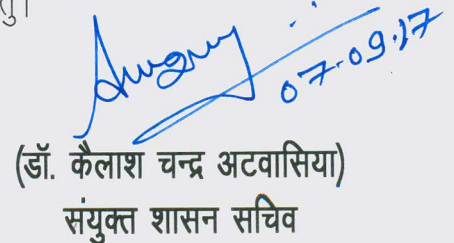 07.09.17
(डॉ. कैलाश चन्द्र अटवासिया)
संयुक्त शासन सचिव